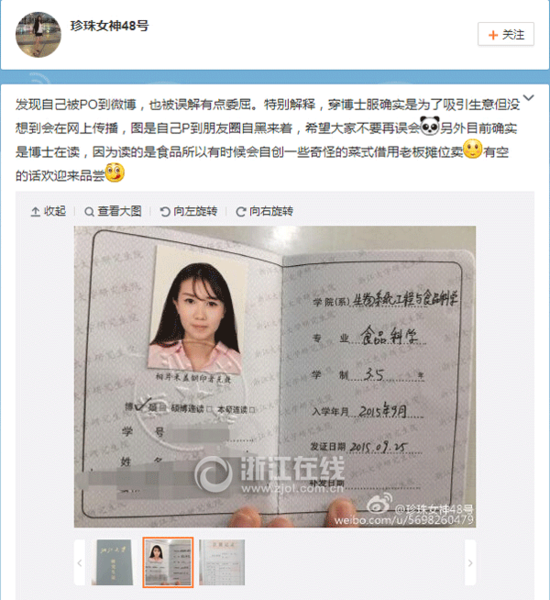 珍珠女神48号
+ 关注
发现自己被PO到微博,也被误解有点委屈。特别解释,穿博士服确实是为了吸引生意但没
想到会在网上传播,图是自己P到朋友圈自黑来着,希望大家不要再误会 另外目前确实
是博士在读,因为读的是食品所以有时候会自创一些奇怪的菜式借用老板摊位卖 有空
的话欢迎来品尝
收起 查看大图 向左旋转 向右旋转
相片未盖钢印者无效
博 硕 硕博连读 本硕连读
学 号
姓 名
学院(系) 生物系统工程与食品科学
专 业 食品科学
学 制 3.5 年
入学年月 2015年9月
发证日期 2015.09.25
补发日期
浙江在线
www.zjol.com.cn
@珍珠女神48号
weibo.com/u/5698260479